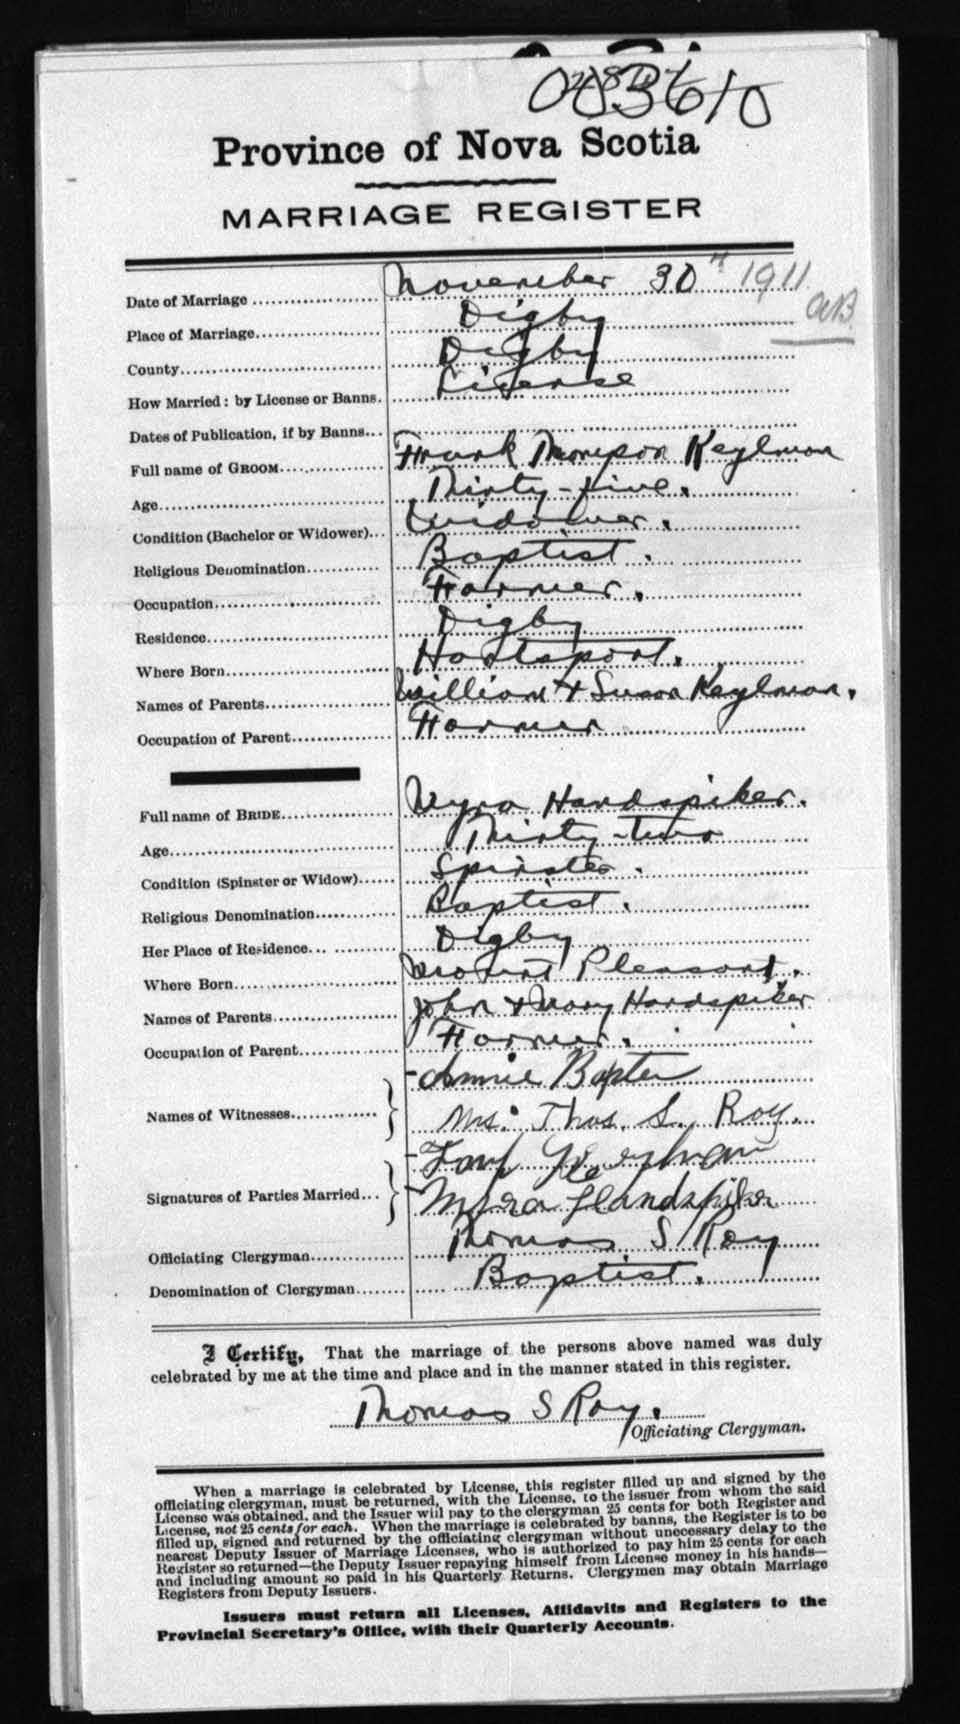 03610
Province of Nova Scotia
MARRIAGE REGISTER
Date of Marriage November 30th 1911
AB
Place of Marriage Digby
County Digby
How Married: by License or Banns. License
Dates of Publication, if by Banns
Full name of GROOM Frank Thompson Keylman
Age Thirty-five.
Condition (Bachelor or Widower) Widower.
Religious Denomination Baptist.
Occupation Farmer.
Residence Digby
Where Born Hantsport.
Names of Parents William + Susan Keylman.
Occupation of Parent Farmer
Full name of BRIDE Myra Handspiker.
Age Thirty-two
Condition (Spinster or Widow) Spinster.
Religious Denomination Baptist.
Her Place of Residence Digby
Where Born Mount Pleasant.
Names of Parents John + Mary Handspiker
Occupation of Parent Farmer.
Names of Witnesses Annie Baxter
Mrs. Thos. S. Roy.
Signatures of Parties Married
Myra Handspiker
Officiating Clergyman Thomas S Roy
Denomination of Clergyman Baptist.
I Certify, That the marriage of the persons above named was duly
celebrated by me at the time and place and in the manner stated in this register.
Thomas S Roy.
Officiating Clergyman.
When a marriage is celebrated by License, this register filled up and signed by the
officiating clergyman, must be returned, with the License, to the issuer from whom the said
License was obtained, and the Issuer will pay to the clergyman 25 cents for both Register and
License, not 25 cents for each. When the marriage is celebrated by banns, the Register is to be
filled up, signed and returned by the officiating clergyman without unnecessary delay to the
nearest Deputy Issuer of Marriage Licenses, who is authorized to pay him 25 cents for each
Register so returned—the Deputy Issuer repaying himself from License money in his hands—
and including amount so paid in his Quarterly Returns. Clergymen may obtain Marriage
Registers from Deputy Issuers.
Issuers must return all Licenses, Affidavits and Registers to the
Provincial Secretary's Office, with their Quarterly Accounts.